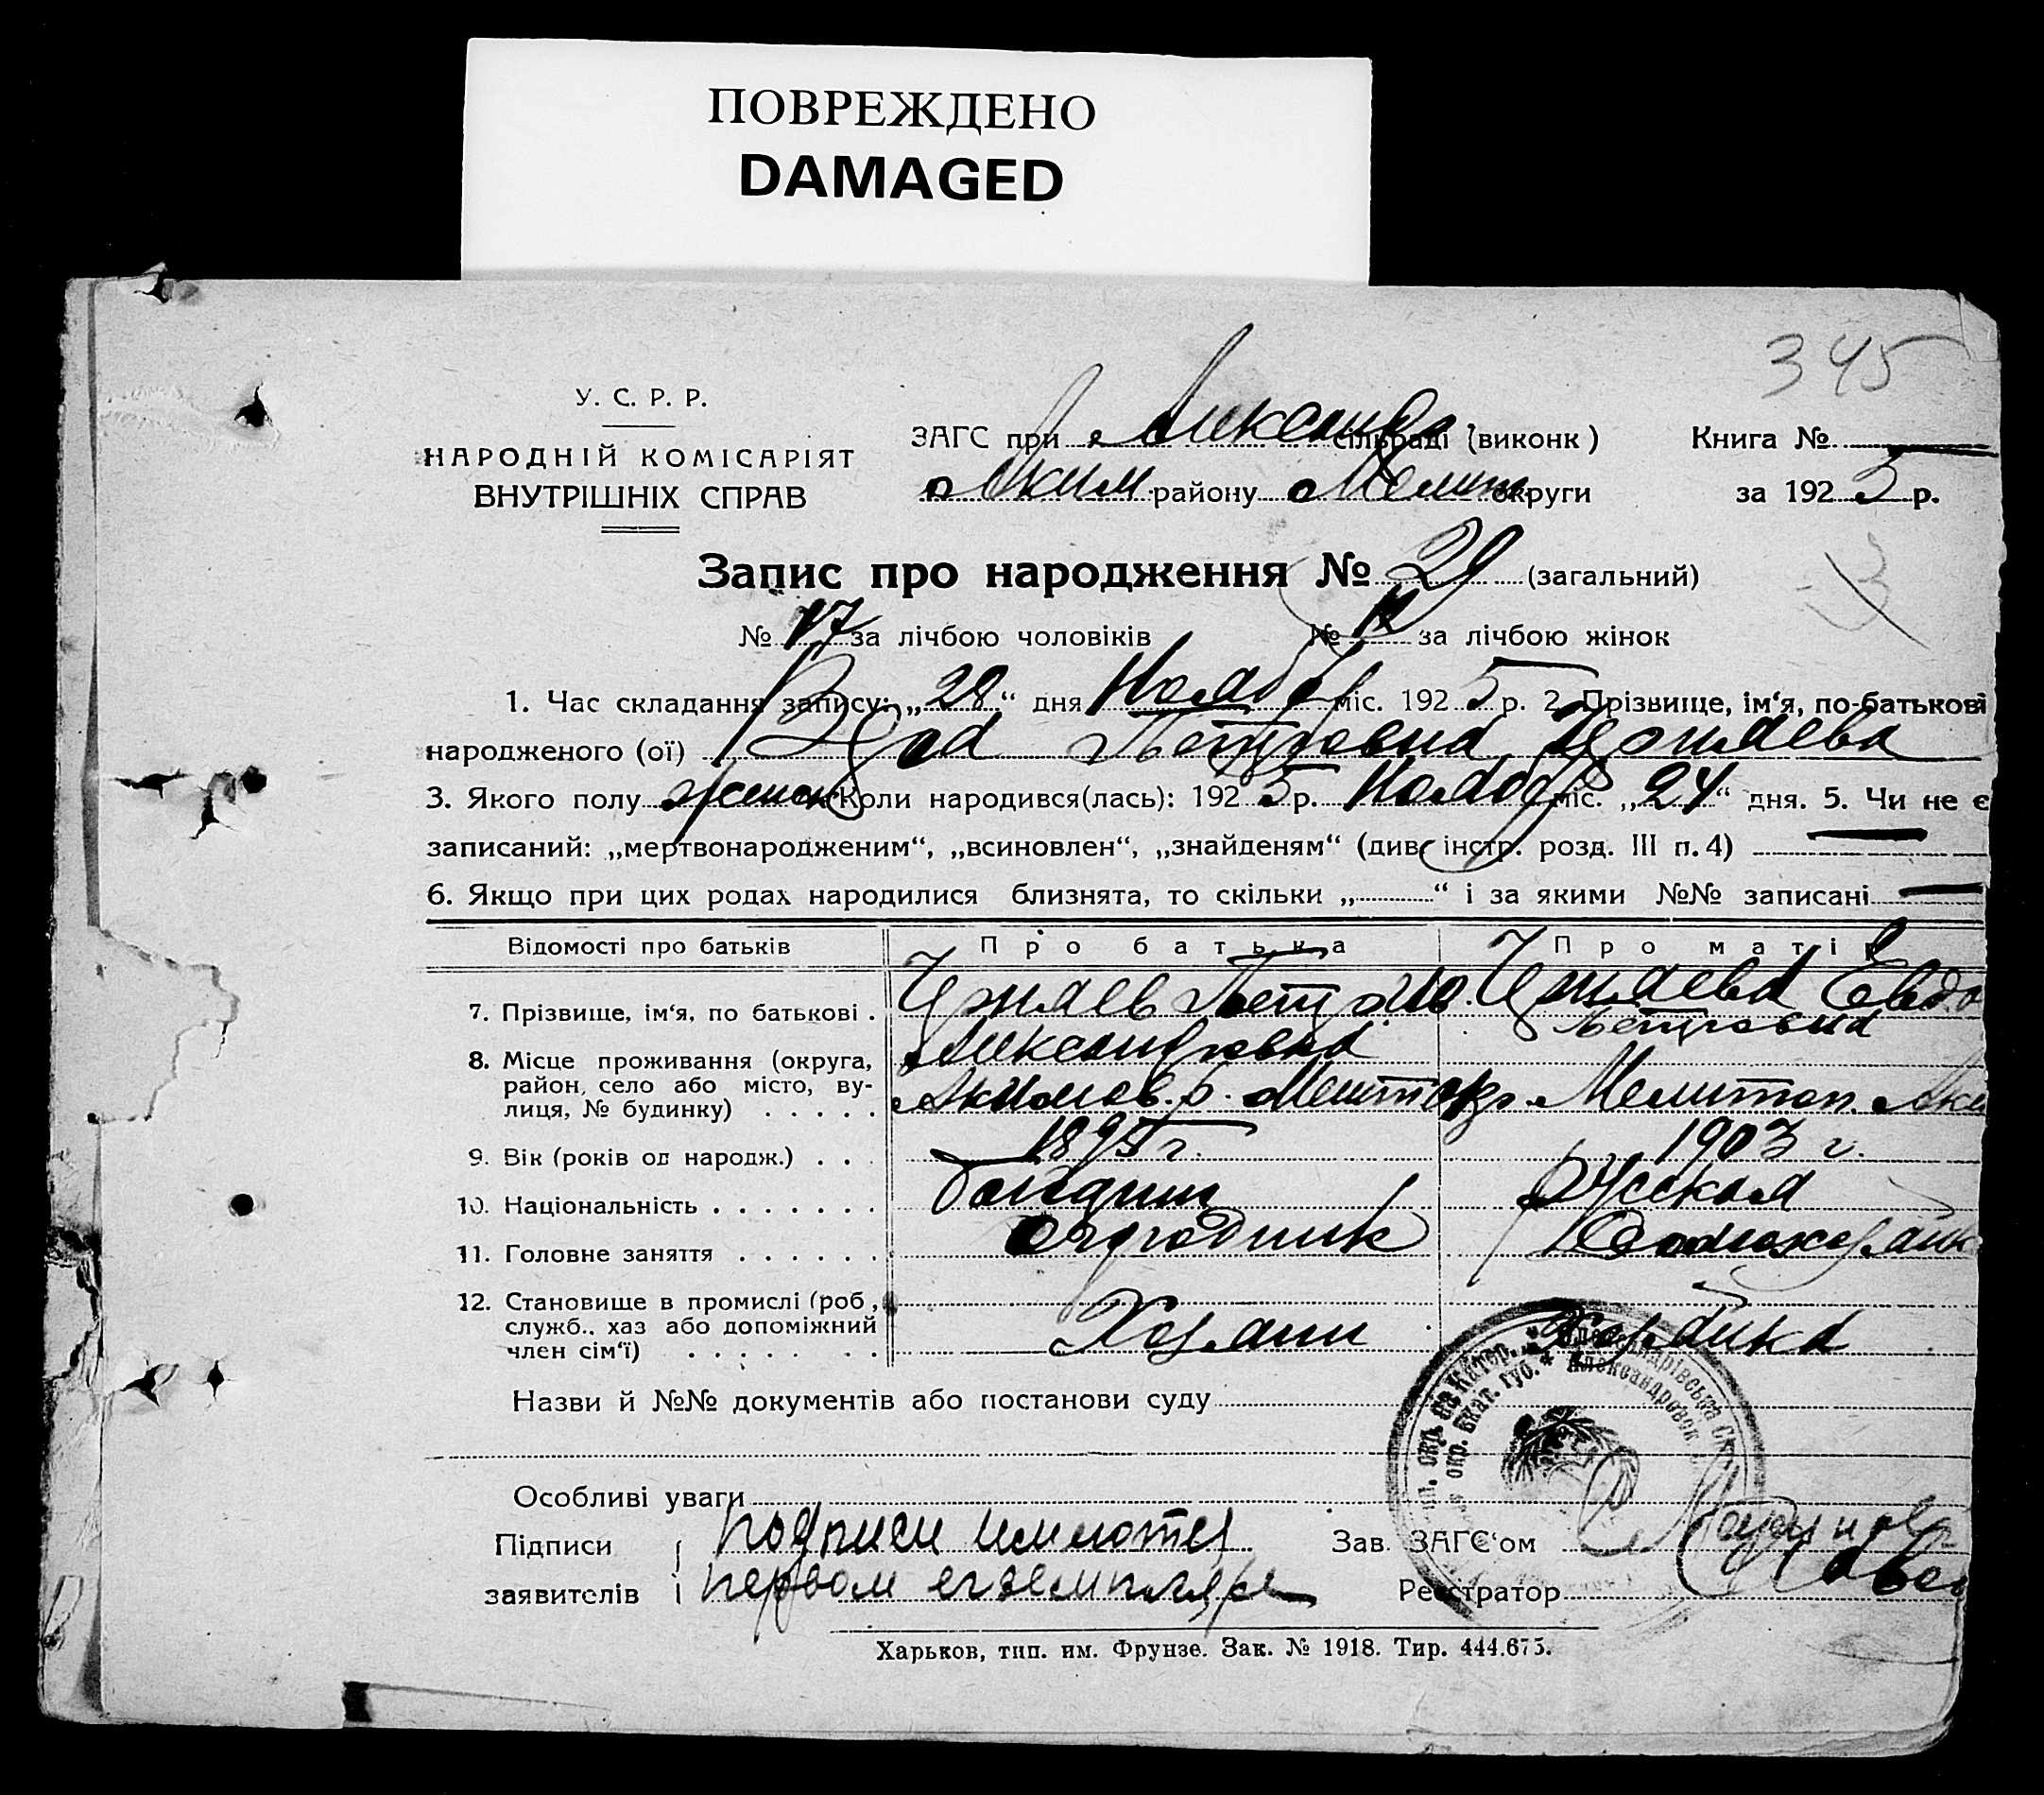 ПОВРЕЖДЕНО
DAMAGED
345
У. С. Р. Р.
НАРОДНІЙ КОМІСАРІЯТ
ВНУТРІШНІХ СПРАВ
ЗАГС при Александр сільраді (виконк)
Аким району Мелит округи
Книга № —
за 1925 р.
Запис про народження № 29 (загальний)
№ 17 за лічбою чоловіків № 12 за лічбою жінок
1. Час складання запису: „28“ дня Ноября міс. 1925 р. 2. Прізвище, ім‘я, по-батькові
народженого (ої) Зоя Петровна
3. Якого полу женск Коли народився(лась): 1925 р. Ноября міс. „24“ дня. 5. Чи не є
записаний: „мертвонародженим“, „всиновлен“, „знайденям“ (див. інстр. розд. III п. 4) —
6. Якщо при цих родах народилися близнята, то скільки „ “ і за якими №№ записані —
Відомості про батьків Про батька Про матір
7. Прізвище, ім‘я, по батькові . Петро Евдо
Александровка Петровна
8. Місце проживання (округа, район, село або місто, вулиця, № будинку) . . . . . Акимов. р. Мелитоп Мелитоп. Аки
9. Вік (років од народж.) . . . 1895 г. 1903 г.
10. Національність . . . . . . . болгарин русская
11. Головне заняття . . . . . . Огородник Домохозяйк
12. Становище в промислі (роб., служб., хаз або допоміжний член сім‘ї) . . . . . . . Хозяин Хозяйка
Назви й №№ документів або постанови суду
Особливі уваги
Підписи заявителів { подписи имеются
первом екземпляре
Зав. ЗАГС‘ом
Реєстратор
Харьков, тип. им. Фрунзе. Зак. № 1918. Тир. 444.675.